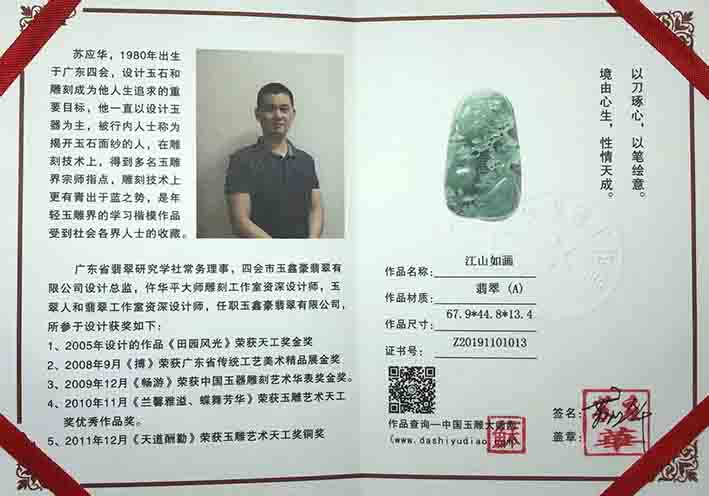 苏应华，1980年出生
于广东四会，设计玉石和
雕刻成为他人生追求的重
要目标，他一直以设计玉
器为主，被行内人士称为
揭开玉石面纱的人，在雕
刻技术上，得到多名玉雕
界宗师指点，雕刻技术上
更有青出于蓝之势，是年
轻玉雕界的学习楷模作品
受到社会各界人士的收藏。
广东省翡翠研究学社常务理事，四会市玉鑫豪翡翠有
限公司设计总监，仵华平大师雕刻工作室资深设计师，玉
翠人和翡翠工作室资深设计师，任职玉鑫豪翡翠有限公司，
所参于设计获奖如下：
1、2005年设计的作品《田园风光》荣获天工奖金奖
2、2008年9月《搏》荣获广东省传统工艺美术精品展金奖
3、2009年12月《畅游》荣获中国玉器雕刻艺术华表奖金奖。
4、2010年11月《兰馨雅溢、蝶舞芳华》荣获玉雕艺术天工
奖优秀作品奖。
5、2011年12月《天道酬勤》荣获玉雕艺术天工奖铜奖
以刀琢心，以笔绘意。
境由心生，性情天成。
作品名称：江山如画
作品材质：翡翠（A）
作品尺寸：67.9*44.8*13.4
证书号：Z20191101013
作品查询—中国玉雕大师网
(www.dashiyudiao.com)
签名：
盖章：
蘇
華